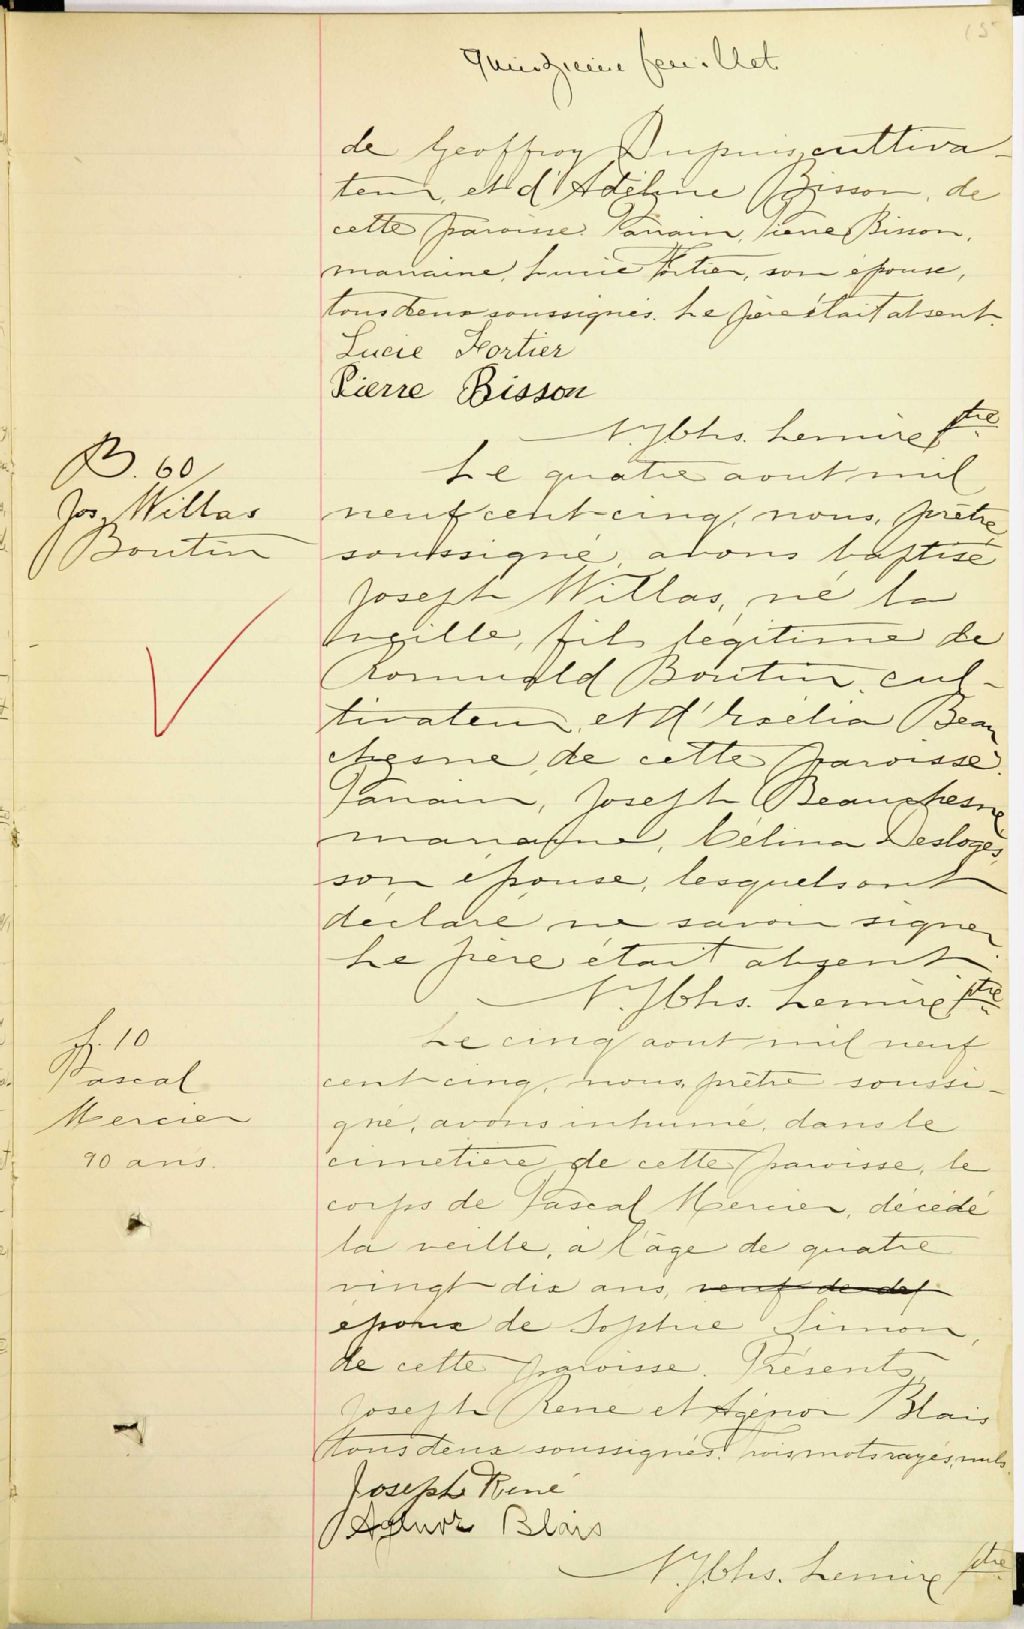 15
quinzième feuillet
de Geoffroy Dupuis, cultiva-
teur, et d'Adéline Bisson, de
cette paroisse. Parrain, Pierre Bisson,
marraine, Lucie Fortier, son épouse,
tous deux soussignés. Le père était absent.
Lucie Fortier
Pierre Bisson
Lemire ptre
B. 60
Jos. Willas
Boutin
Le quatre aout mil
neuf cent-cinq, nous, prêtre
soussigné, avons baptisé
Joseph Willas, né la
veille, fils légitime de
Romuald Boutin, cul-
tivateur, et d'Exélia Beau
chesne, de cette paroisse.
Parrain, Joseph Beauchesne,
marraine, Célina Desloges,
son épouse, lesquels ont
déclaré ne savoir signer.
Le père était absent.
Lemire ptre
S. 10
Pascal
Mercier
90 ans.
Le cinq aout mil neuf
cent-cinq, nous, prêtre soussi-
gné, avons inhumé, dans le
cimetière de cette paroisse, le
corps de Pascal Mercier, décédé
la veille, à l'âge de quatre
vingt-dix ans, veuf de
époux de Sophie Simon,
de cette paroisse. Présents,
Joseph René et Agénor Blais
tous deux soussignés. Trois mots rayés, nuls.
Joseph René
Agénor Blais
Lemire ptre